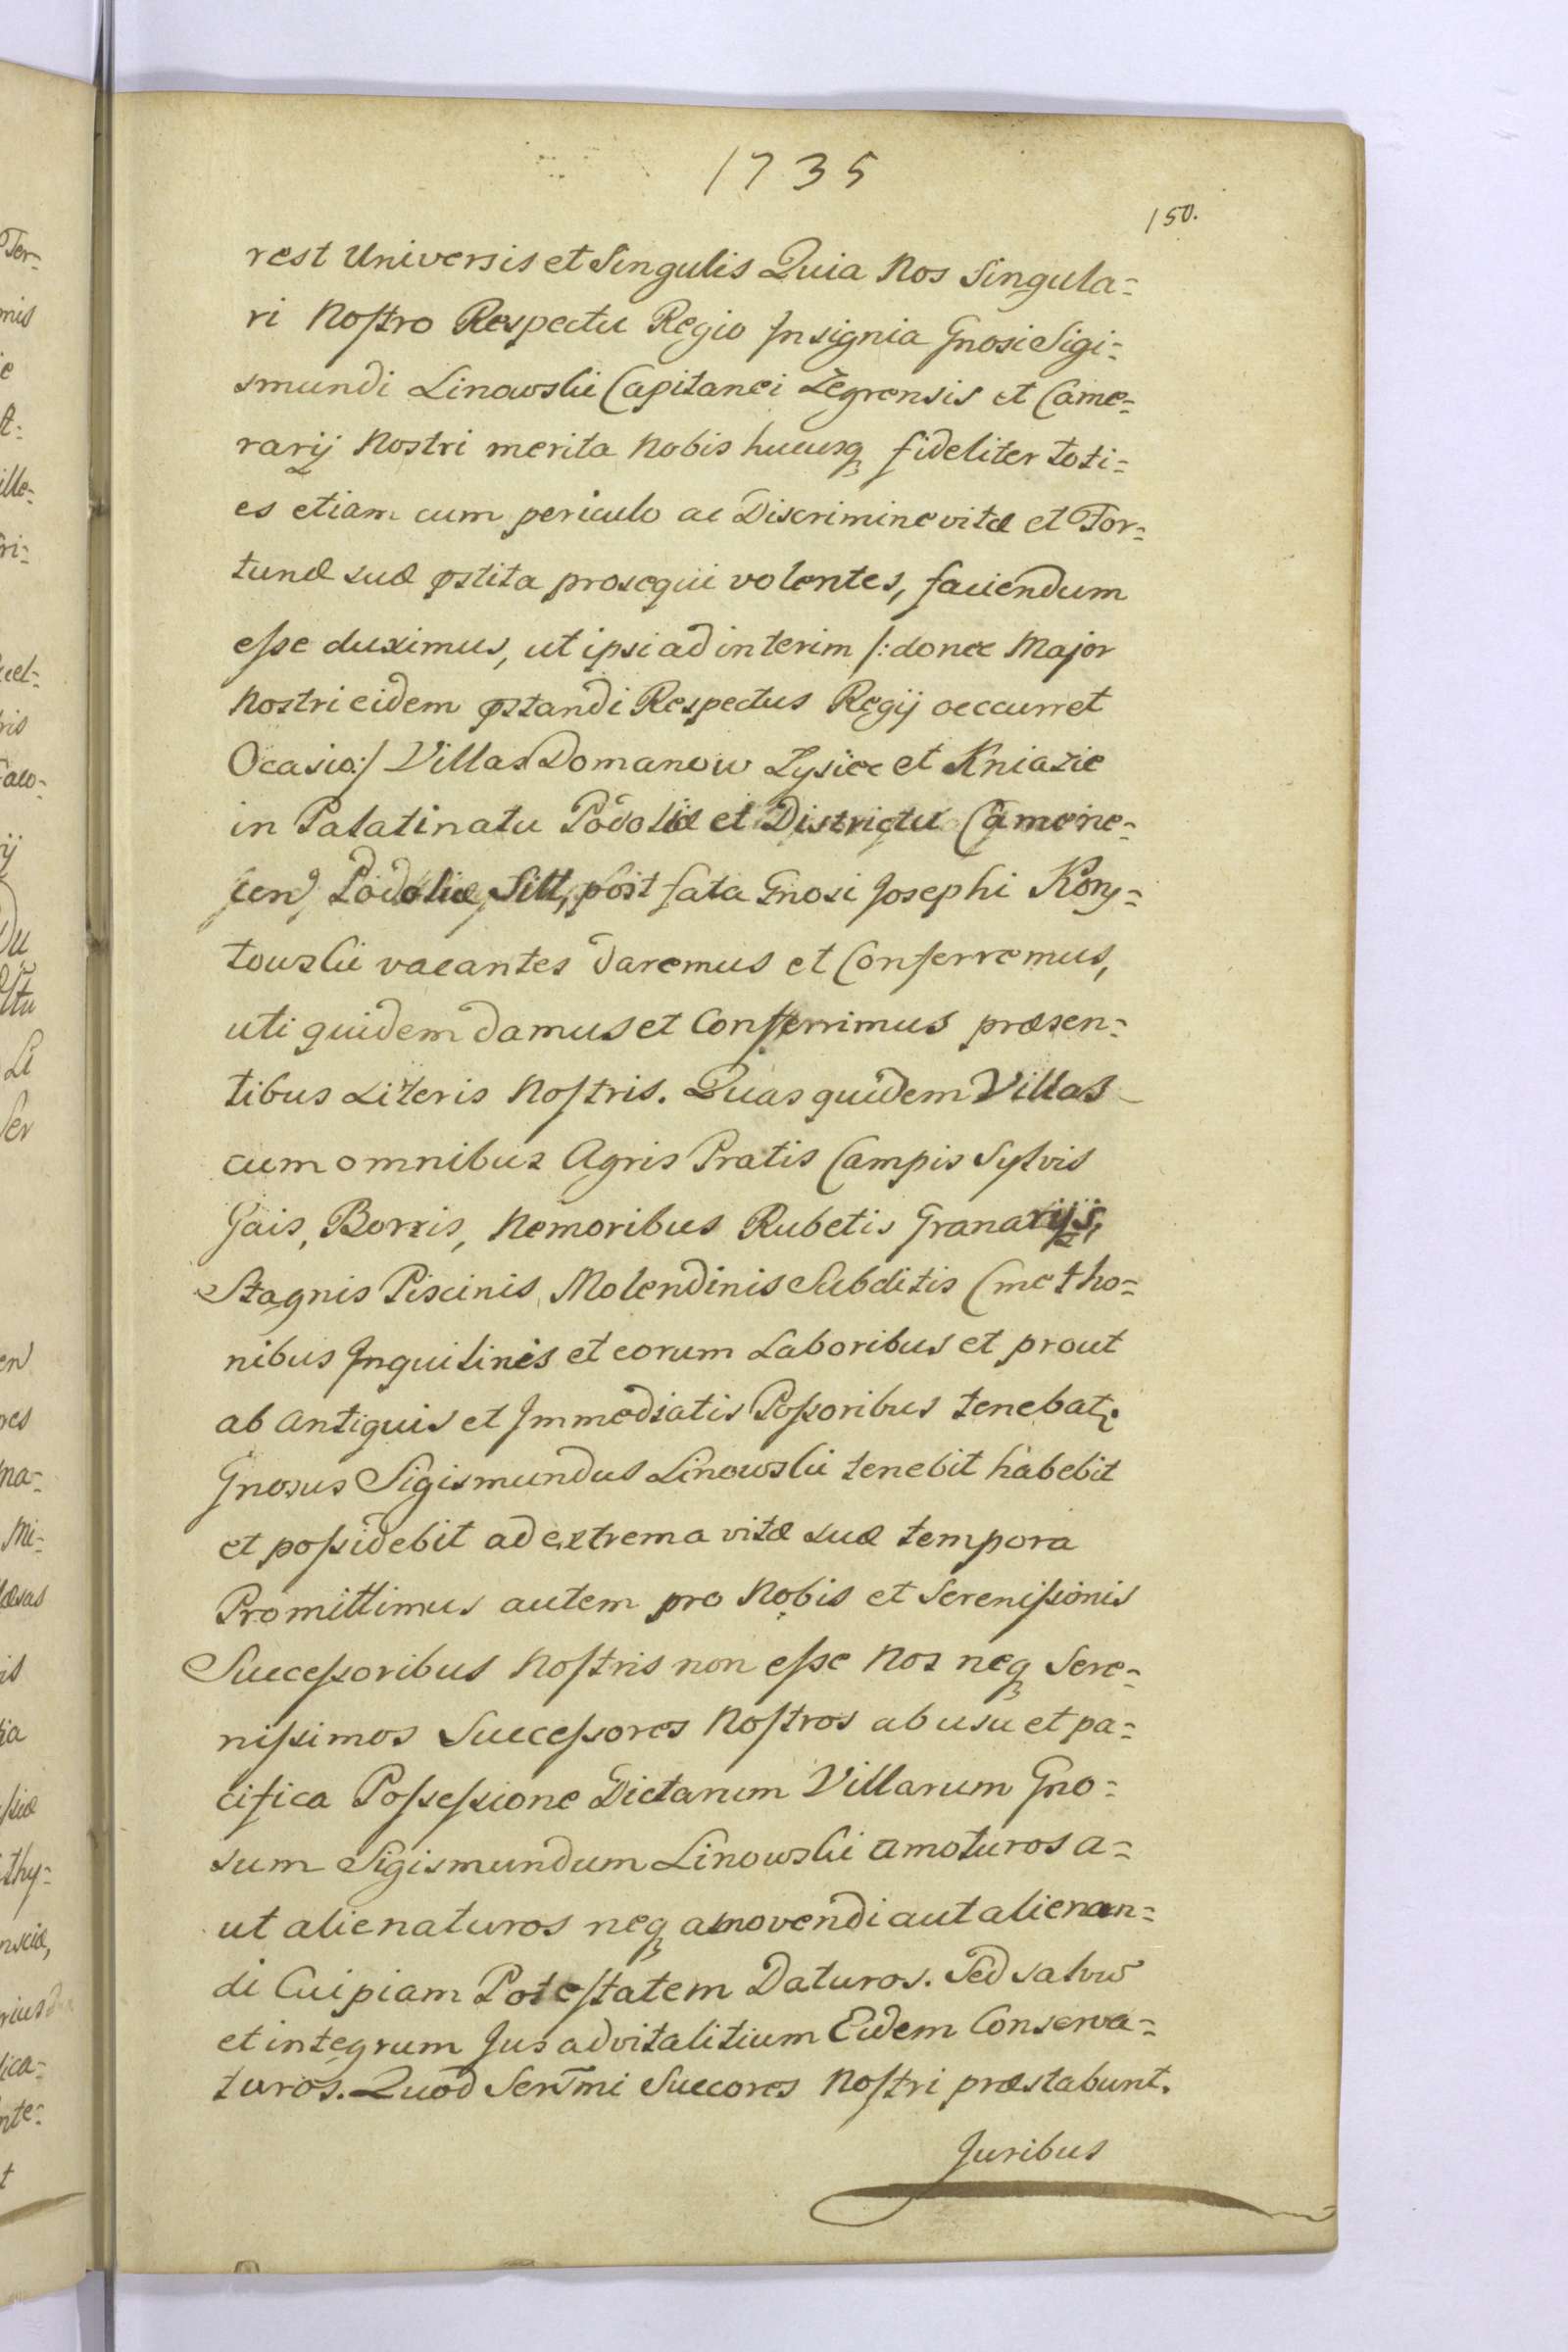 1735
150.
rest Universis et Singulis Quia Nos Singula=
ri Nostro Respectu Regio Insignia Gnosi Sigi=
smundi Linowski Capitanei Zegrensis et Came=
rarij Nostri merita Nobis hucusq fideliter toti=
es etiam cum periculo ac Discrimine vitæ et For=
tunæ suæ pstita prosequi volentes, faciendum
esse duximus, ut ipsi ad interim /: donec Major
Nostri eidem pstandi Respectus Regij occurret
Ocasio:/ Villas Domanow Lysiec et Kniazie
in Palatinatu Podoliæ et Districtu Camene=
cen Podoliæ Sitt, post fata Gnosi Josephi Kory=
towski vacantes daremus et Conferremus,
uti quidem damus et Conferrimus præsen=
tibus Literis Nostris. Quas quidem Villas
cum omnibus Agris Pratis Campis Sylvis
Gais, Borris, Nemoribus Rubetis Granarijs,
Stagnis Piscinis, Molendinis Subditis Cmetho=
nibus Inquilinis et eorum Laboribus et prout
ab Antiquis et Immediatis Possoribus tenebat
Gnosus Sigismundus Linowski tenebit habebit
et possidebit ad extrema vitæ suæ tempora
Promittimus autem pro Nobis et Serenissionis
Successoribus Nostris non esse Nos neq Sere=
nissimos Successores Nostros ab usu et pa=
cifica Possessione Dictarum Villarum Gno=
sum Sigismundum Linowski amoturos a=
ut alienaturos neq amovendi aut alienan=
di Cuipiam Potestatem Daturos. Sed salvũ
et integrum Jus advitalitium Eidem Conserva=
turos. Quod Serm̃i Succores Nostri præstabunt.
Juribus